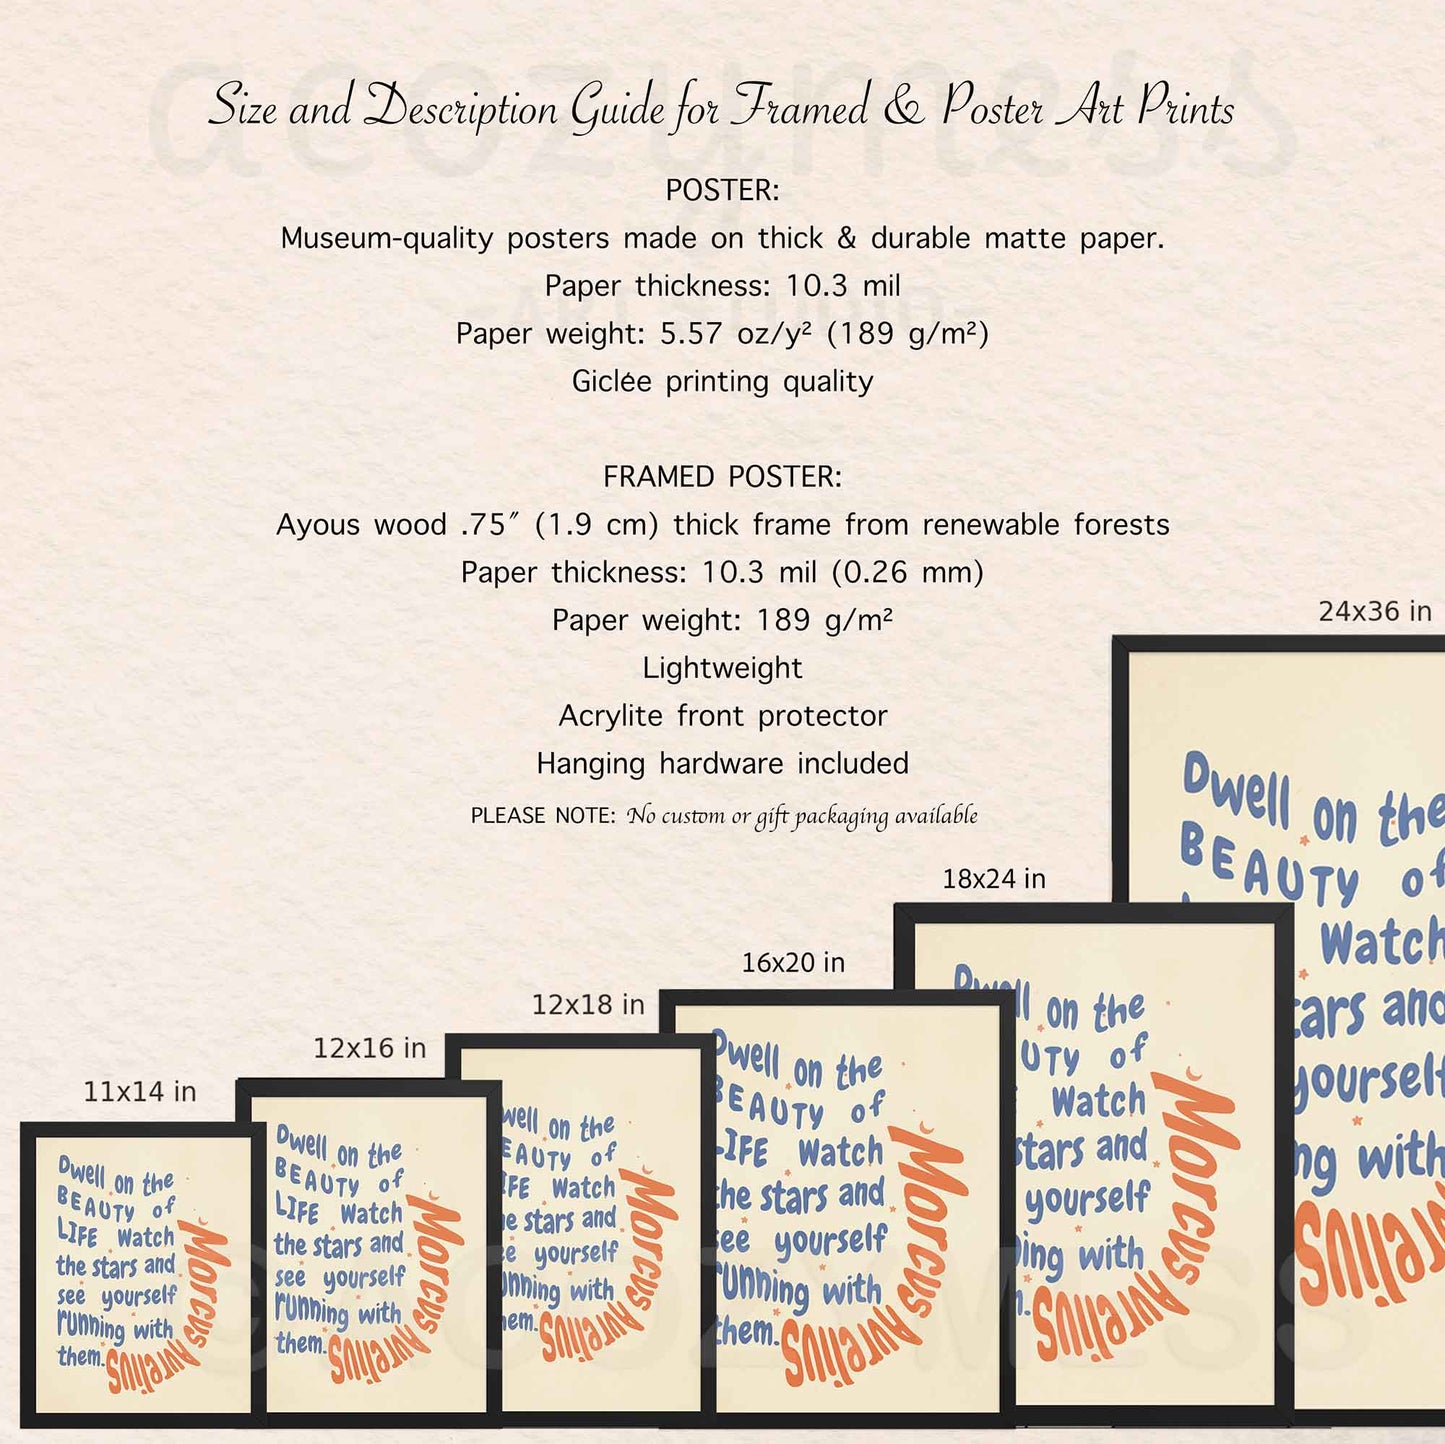 acozymess
Size and Description Guide for Framed & Poster Art Prints
POSTER:
Museum-quality posters made on thick & durable matte paper.
Paper thickness: 10.3 mil
Paper weight: 5.57 oz/y² (189 g/m²)
Giclée printing quality
FRAMED POSTER:
Ayous wood .75″ (1.9 cm) thick frame from renewable forests
Paper thickness: 10.3 mil (0.26 mm)
Paper weight: 189 g/m²
Lightweight
Acrylite front protector
Hanging hardware included
PLEASE NOTE: No custom or gift packaging available
11x14 in
Dwell on the
BEAUTY of
LIFE Watch
the stars and
see yourself
running with
them.
Marcus Aurelius
12x16 in
Dwell on the
BEAUTY of
LIFE Watch
the stars and
see yourself
running with
them.
Marcus Aurelius
12x18 in
well on the
EAUTY of
IFE Watch
e stars and
ee yourself
unning with
hem.
Marcus Aurelius
16x20 in
Dwell on the
BEAUTY of
LIFE Watch
the stars and
see yourself
running with
them.
Marcus Aurelius
18x24 in
Dwell on the
UTY of
Watch
stars and
yourself
ing with
Marcus Aurelius
24x36 in
Dwell on the
BEAUTY of
Watch
tars and
yourself
ng with
relius